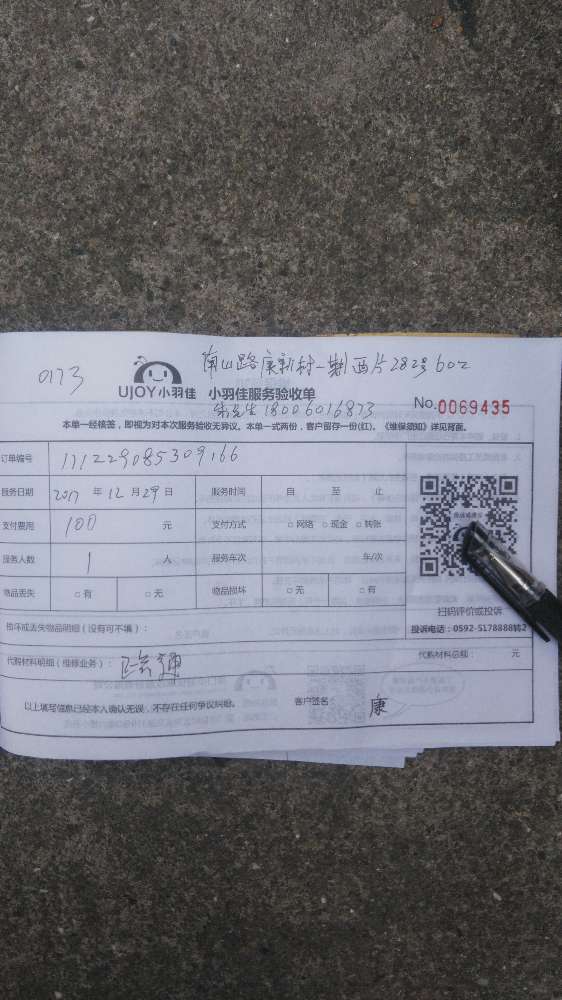 南山路康新村一期西片282号602
0173
UJOY小羽佳 小羽佳服务验收单
朱先生18006016873
No.0069435
本单一经核签，即视为对本次服务验收无异议。本单一式两份，客户留存一份(红)。《维保须知》详见背面。
订单编号 171229085309166
服务日期 2017 年 12 月 29 日 服务时间 自 至 止
支付费用 100 元 支付方式 □网络 □现金 □转账
服务人数 1 人 服务车次 车/次
物品丢失 □有 □无 物品损坏 □无 □有
扫码评价或投诉
损坏或丢失物品明细（没有可不填）：
投诉电话：0592-5178888转2
代购材料明细（维修业务）： 代购材料总额： 元
以上填写信息已经本人确认无误，不存在任何争议纠纷。 客户签名： 康